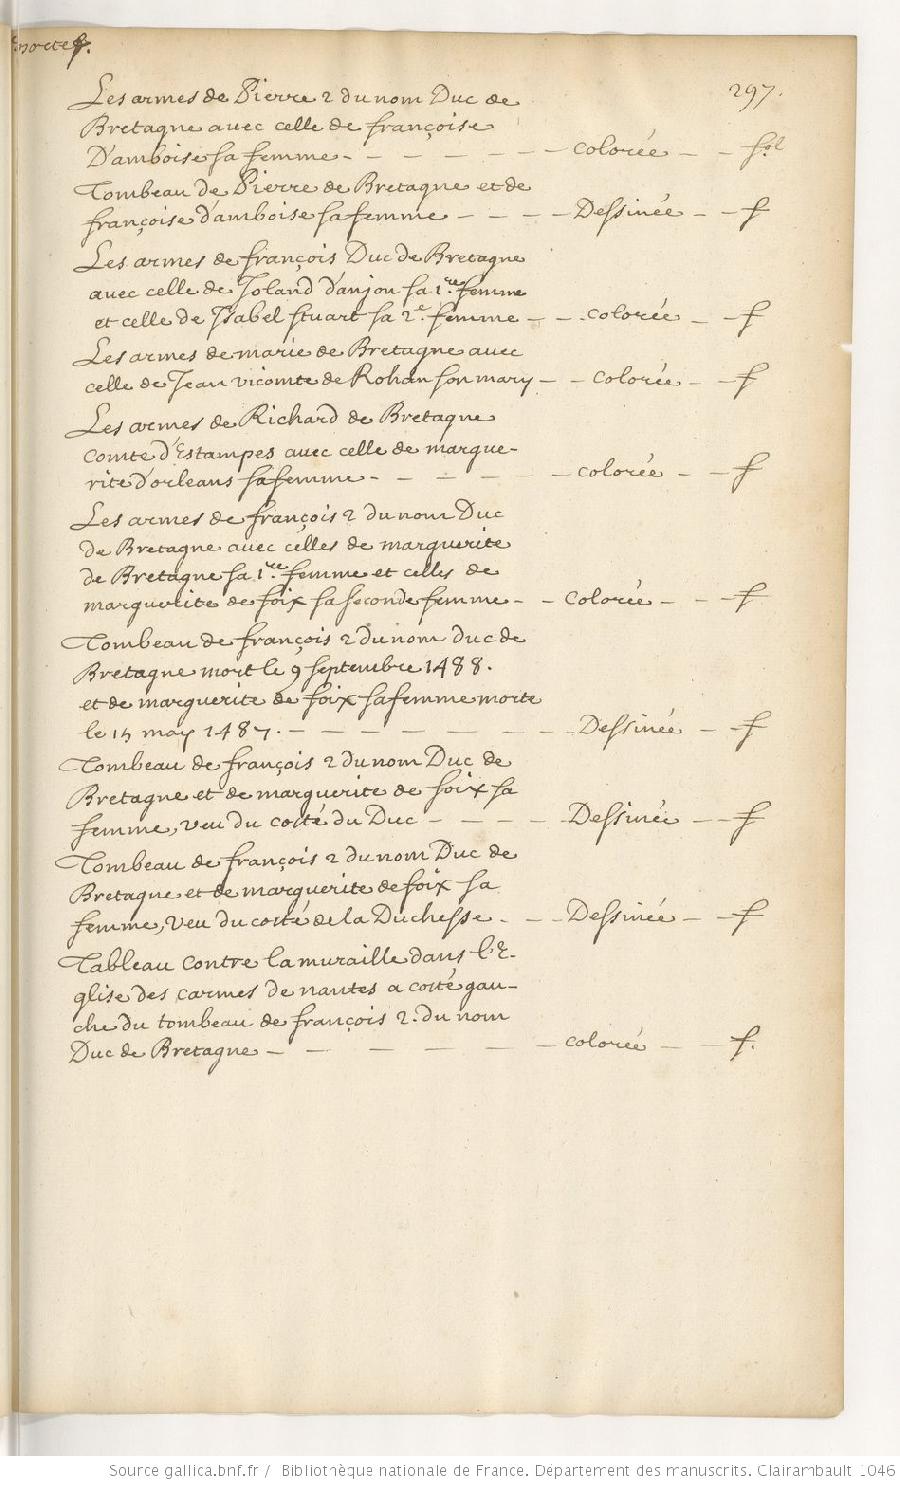 297.
Les armes de Pierre 2 du nom Duc de
Bretagne avec celle de françoise
D'amboise sa femme - - - - - - colorée - - fol
Tombeau de Pierre de Bretagne et de
françoise d'amboise sa femme - - - - Dessinée - - f
Les armes de françois Duc de Bretagne
avec celle de Joland D'anjou sa 1.re femme
et celle de Isabel stuart sa 2.e femme - - colorée - - f
Les armes de marie de Bretagne avec
celle de Jean vicomte de Rohan son mary - - colorée - - f
Les armes de Richard de Bretagne
comte d'Estampes avec celle de margue-
rite d'orleans sa femme - - - - - colorée - - f
Les armes de françois 2 du nom Duc
de Bretagne avec celles de marguerite
de Bretagne sa 1.re femme et celles de
marguerite de foix sa seconde femme - - colorée - - f
Tombeau de françois 2 du nom duc de
Bretagne mort le 9 septembre 1488.
et de marguerite de foix sa femme morte
le 15 may 1487. - - - - - - Dessinée - f
Tombeau de françois 2 du nom Duc de
Bretagne et de marguerite de foix sa
femme, veu du costé du Duc - - - - Dessinée - - f
Tombeau de françois 2 du nom Duc de
Bretagne et de marguerite de foix sa
femme, veu du costé de la Duchesse - - - Dessinée - - f
Tableau contre la muraille dans l'E-
glise des carmes de nantes a costé gau-
che du tombeau de françois 2. du nom
Duc de Bretagne - - - - - - colorée - - f.
Source gallica.bnf.fr / Bibliothèque nationale de France. Département des manuscrits. Clairambault 1046